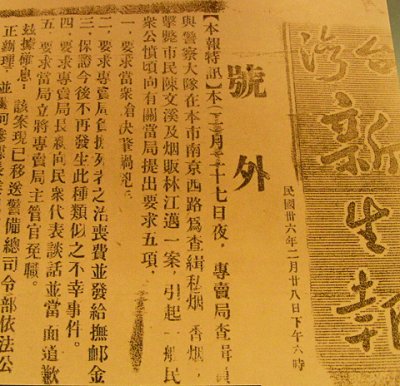 台灣新生報
民國卅六年二月廿八日下午六時
號外
【本報特訊】本二月二十七日夜,專賣局查緝員
與警察大隊在本市南京西路爲查緝私烟香烟,
擊斃市民陳文溪及烟販林江邁一案,引起一般民
衆公憤頃向有關當局提出要求五項,
一,要求當衆槍決肇禍犯
二,要求專賣局負擔死者之治喪費並發給撫卹金
三,保證今後不再發生此種類似之不幸事件。
四,要求專賣局長親向民衆代表談話並當面道歉
五,要求當局立將專賣局主管官免職。
茲據確息:該案現已移送警備總司令部依法公
正辦理,並